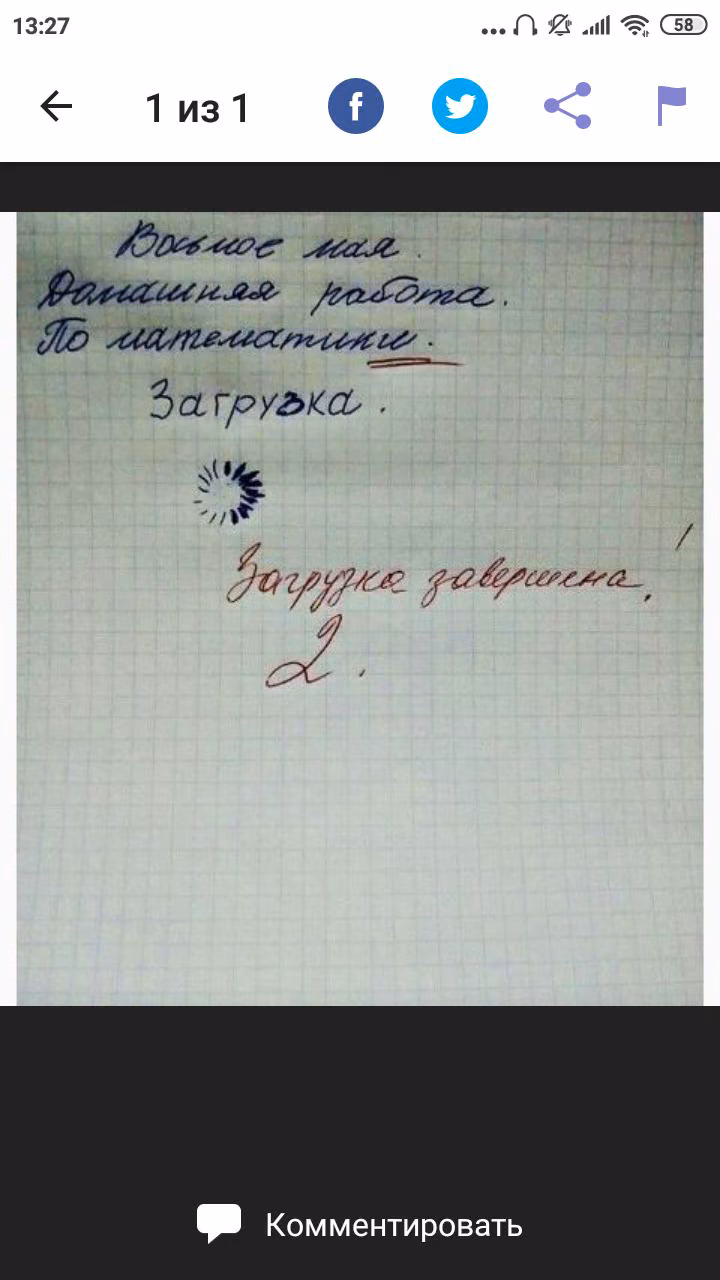 13:27
58
1 из 1
Восьмое мая.
Домашняя работа.
По математики.
Загрузка.
Загрузка завершена!
2.
Комментировать